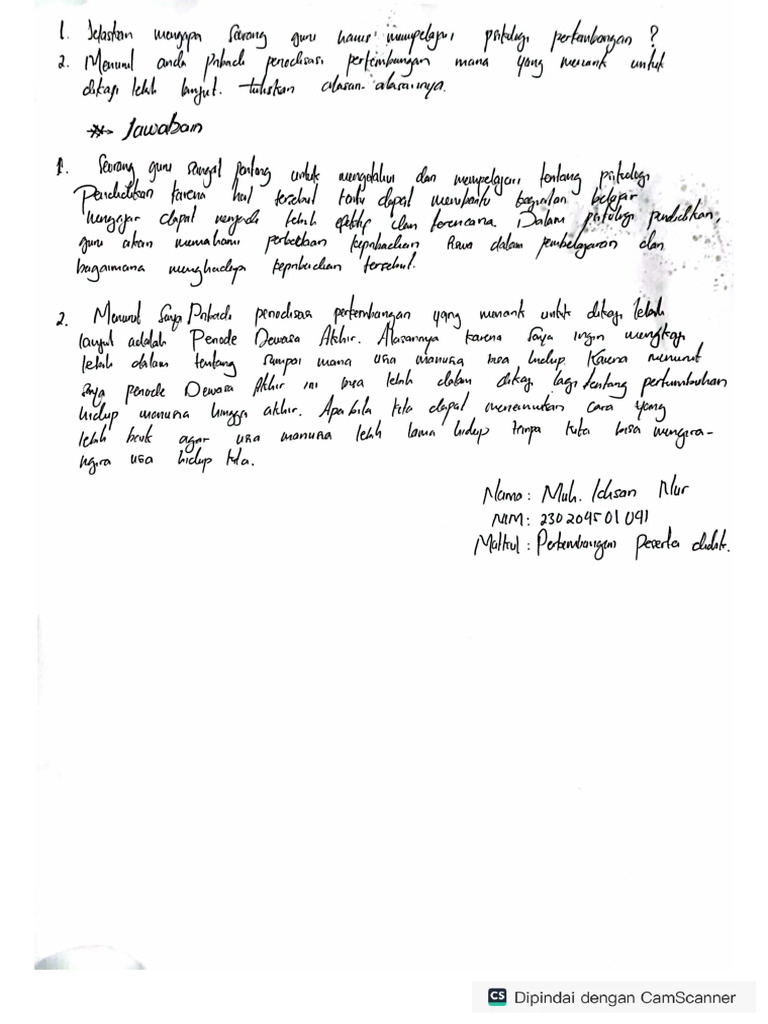 1. Jelaskan mengapa seorang guru harus mempelajari psikologi perkembangan ?
2. Menurut anda pribadi periodisasi perkembangan mana yang menarik untuk
dikaji lebih lanjut. tuliskan alasan-alasannya.
*- Jawaban
1. Seorang guru sangat penting untuk mengetahui dan mempelajari tentang psikologi
Pendidikan karena hal tersebut tentu dapat membantu kegiatan belajar
mengajar dapat menjadi lebih efektif dan terencana. Dalam psikologi pendidikan,
guru akan memahami perbedaan kepribadian siswa dalam pembelajaran dan
bagaimana menghadapi kepribadian tersebut.
2. Menurut saya Pribadi periodisasi perkembangan yang menarik untuk dikaji lebih
lanjut adalah Periode Dewasa Akhir. Alasannya karena saya ingin mengkaji
lebih dalam tentang sampai mana usia manusia bisa hidup. Karena menurut
saya periode Dewasa Akhir ini bisa lebih dalam dikaji lagi tentang pertumbuhan
hidup manusia hingga akhir. Apabila kita dapat menemukan cara yang
lebih baik agar usia manusia lebih lama hidup tanpa kita bisa mengira-
ngira usia hidup kita.
Nama : Muh. Ichsan Nur
NIM : 230204501041
Matkul : Perkembangan peserta didik.
CS Dipindai dengan CamScanner